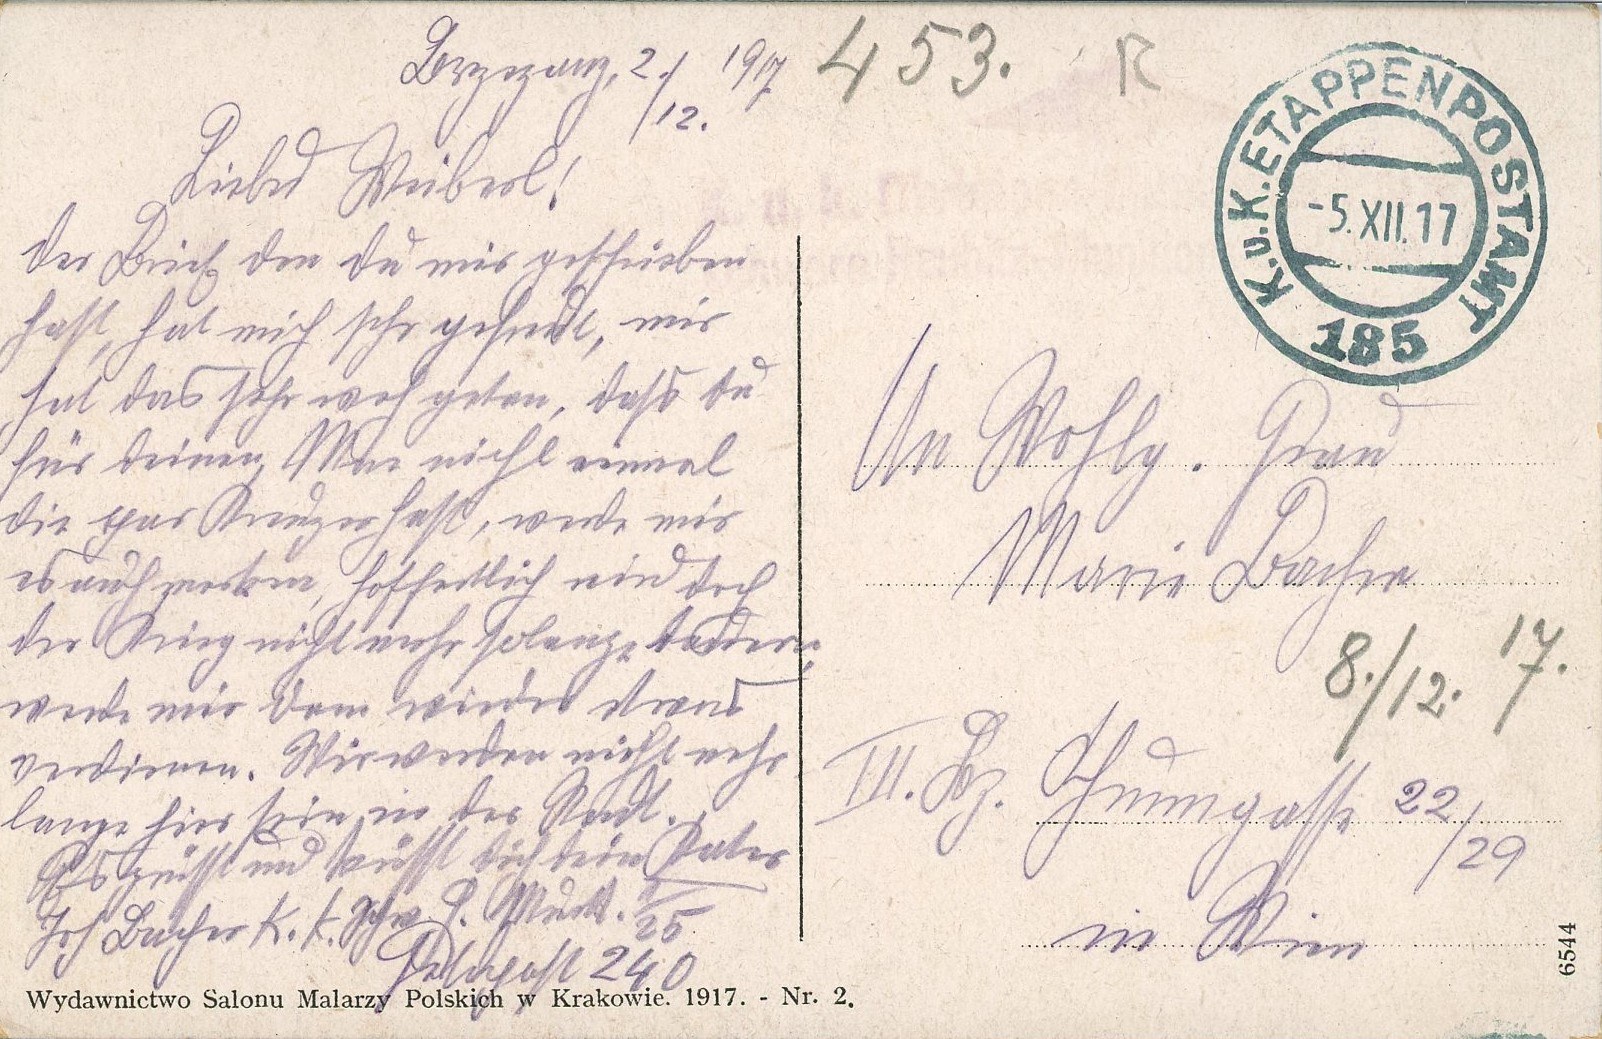 Brzezany, 2./12. 1917
453. R
K.u.K. ETAPPENPOSTAMT
-5.XII.17
185
Liebes Weiberl!
Der Brief den du mir geschrieben
hast, hat mich sehr gefreut, mir
hat das sehr weh getan, dass du
für deinen Man nicht einmal
die par Kreuzer hast, werde mir
es auch merken, hoffentlich wird doch
der Krieg nicht mehr solange dauern,
werde mir dann wieder etwas
verdienen. Wir werden nicht mehr
lange hier sein in der Stadt.
Es grüsst und küsst dich dein Vater
Jos Bacher K. k. Schw.
Feldpost 240
An Wohlg. Frau
Marie Bacher
8./12. 17.
III. Bz. 22/29
in Wien
6544
Wydawnictwo Salonu Malarzy Polskich w Krakowie. 1917. - Nr. 2.